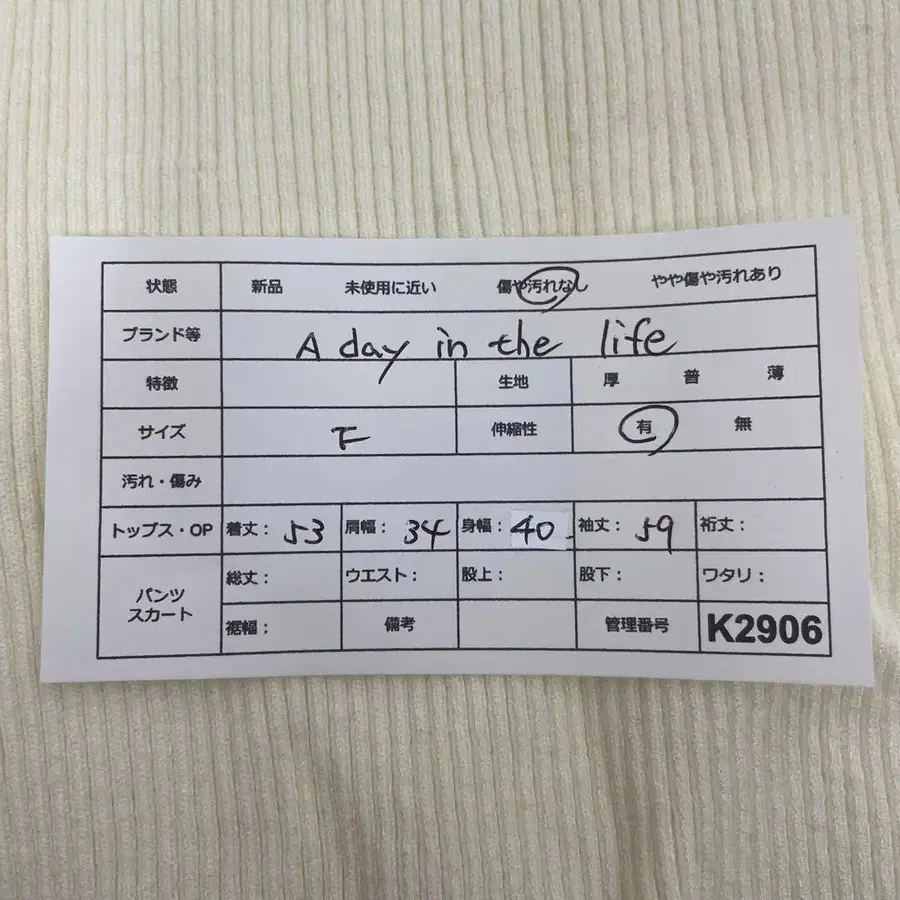 状態 新品 未使用に近い 傷や汚れなし やや傷や汚れあり
ブランド等 A day in the life
特徴 生地 厚 普 薄
サイズ F 伸縮性 有 無
汚れ・傷み
トップス・OP 着丈: 53 肩幅: 34 身幅: 40 袖丈: 59 裄丈:
パンツ
スカート
総丈: ウエスト: 股上: 股下: ワタリ:
裾幅; 備考 管理番号 K2906